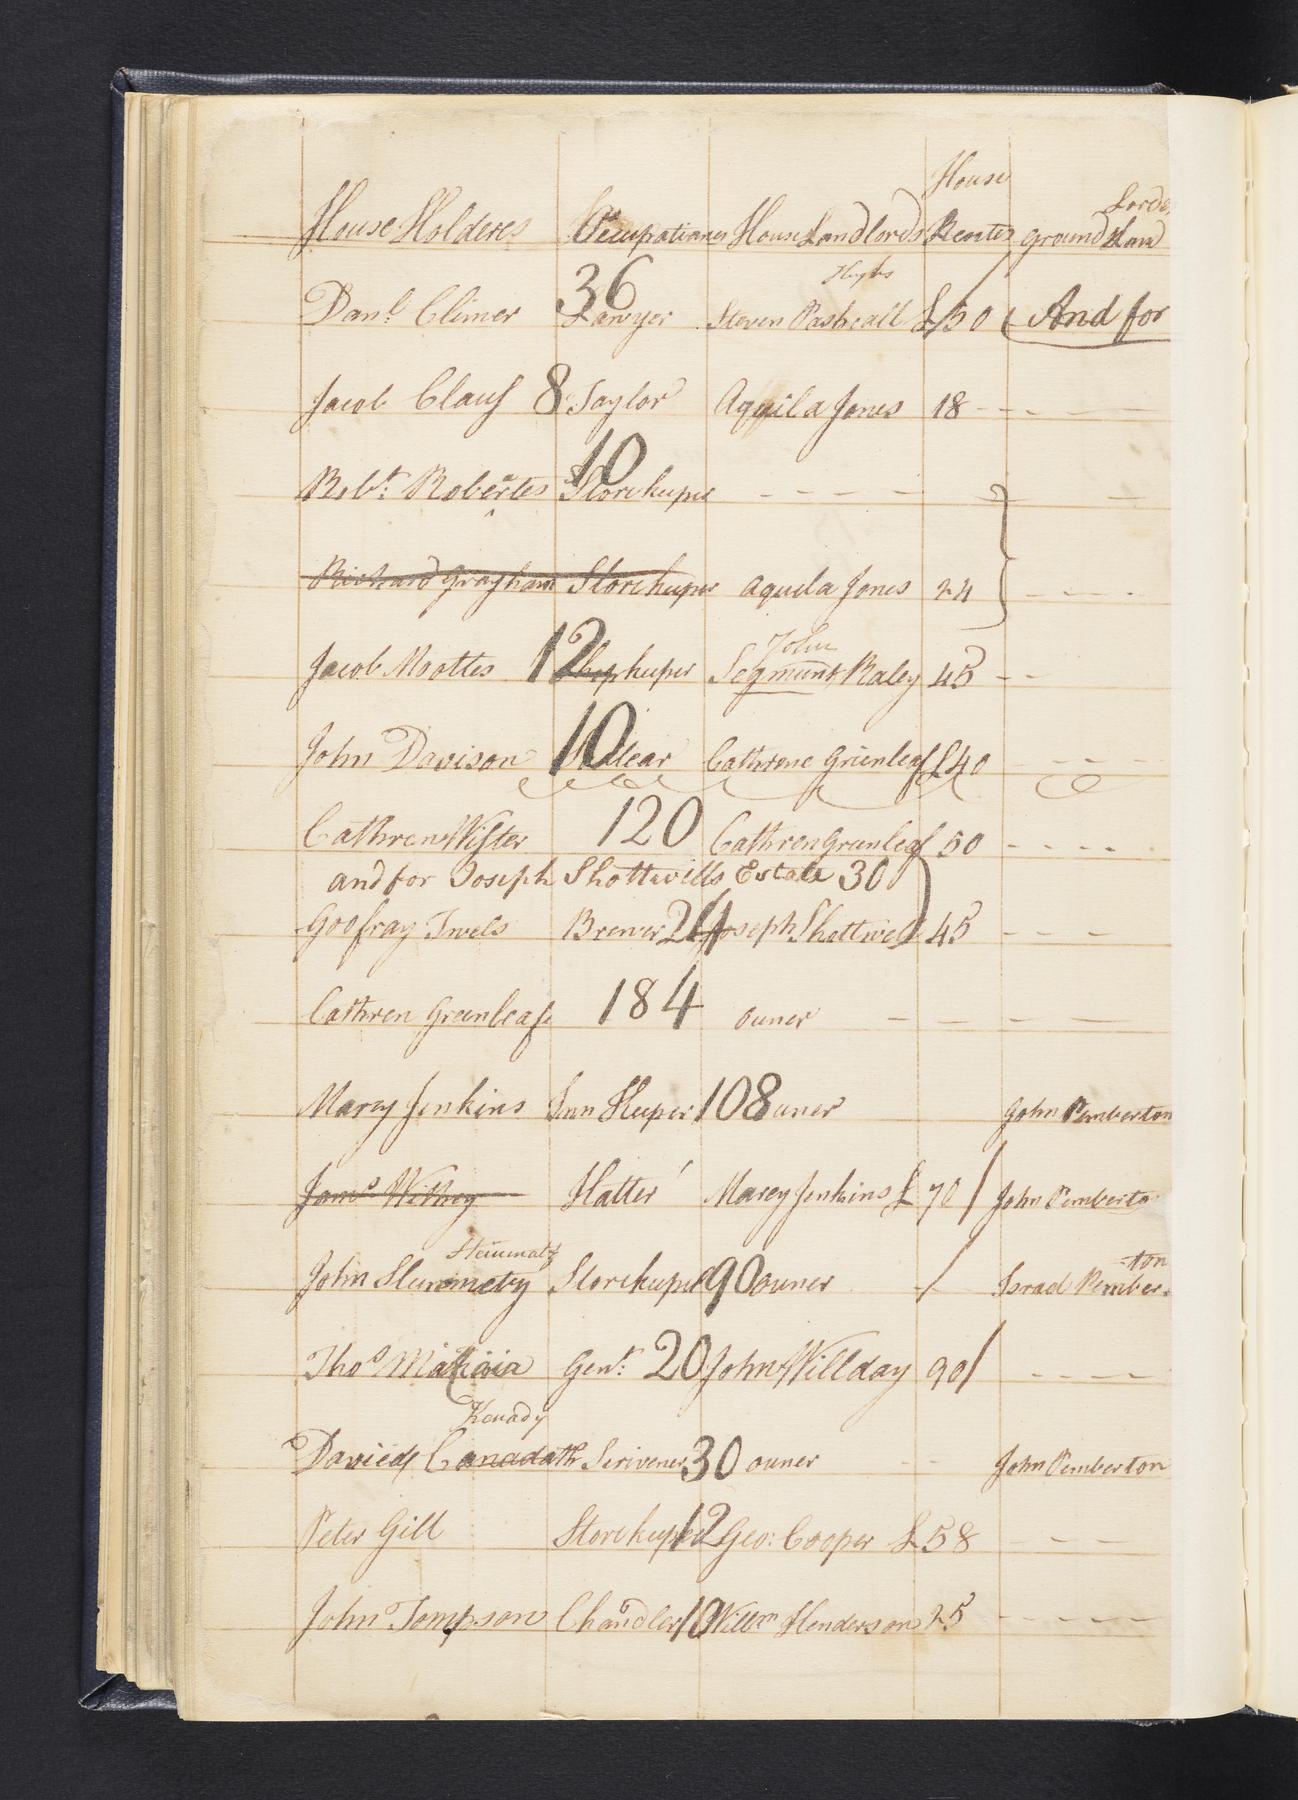 House
Lords
House Holderes Occupationes House Landlords Rentes ground Lan
Hughs
Danl. Climer 36 Lawyer Steven Pasheall £50 And for
Jacob Clauss 8 Taylor Aquila Jones 18 - - - -
Robt. Robertes 10 Storekeeper - - - - -
Richard Grayham Storekeeper Aquila Jones 24 - - - -
John
Jacob Moottes 12 Shopkeeper Segmunt Raley 45 - -
John Davison 10 Cathrone Grienleaf £40 - - - -
Cathren Wister 120 Cathren Grenleaf 50 - - - -
and for Joseph Shottwells Estate 30
Goofray Twels Brewer 24 Joseph Shottwell 45 - - -
Cathren Greenleafe 184 ouner - - - - -
Marey Jenkins Inn Keeper 108 ouner John Pemberton
Jams Withey Hatter Marey Jenkins £70 / John Pemberto
Steinmatz
John Stummety Storekeeper 90 ouner / Israel Pember-
-ton
Thos. Gent. 20 John Willday 90 / - - - -
Kenady
Davied Canadath Scrivener 30 ouner - - John Pemberton
Peter Gill Storekeeper 12 Geo: Cooper £58 - - -
John Tompson Chandler 10 Willm Henderson 25 - - - - -